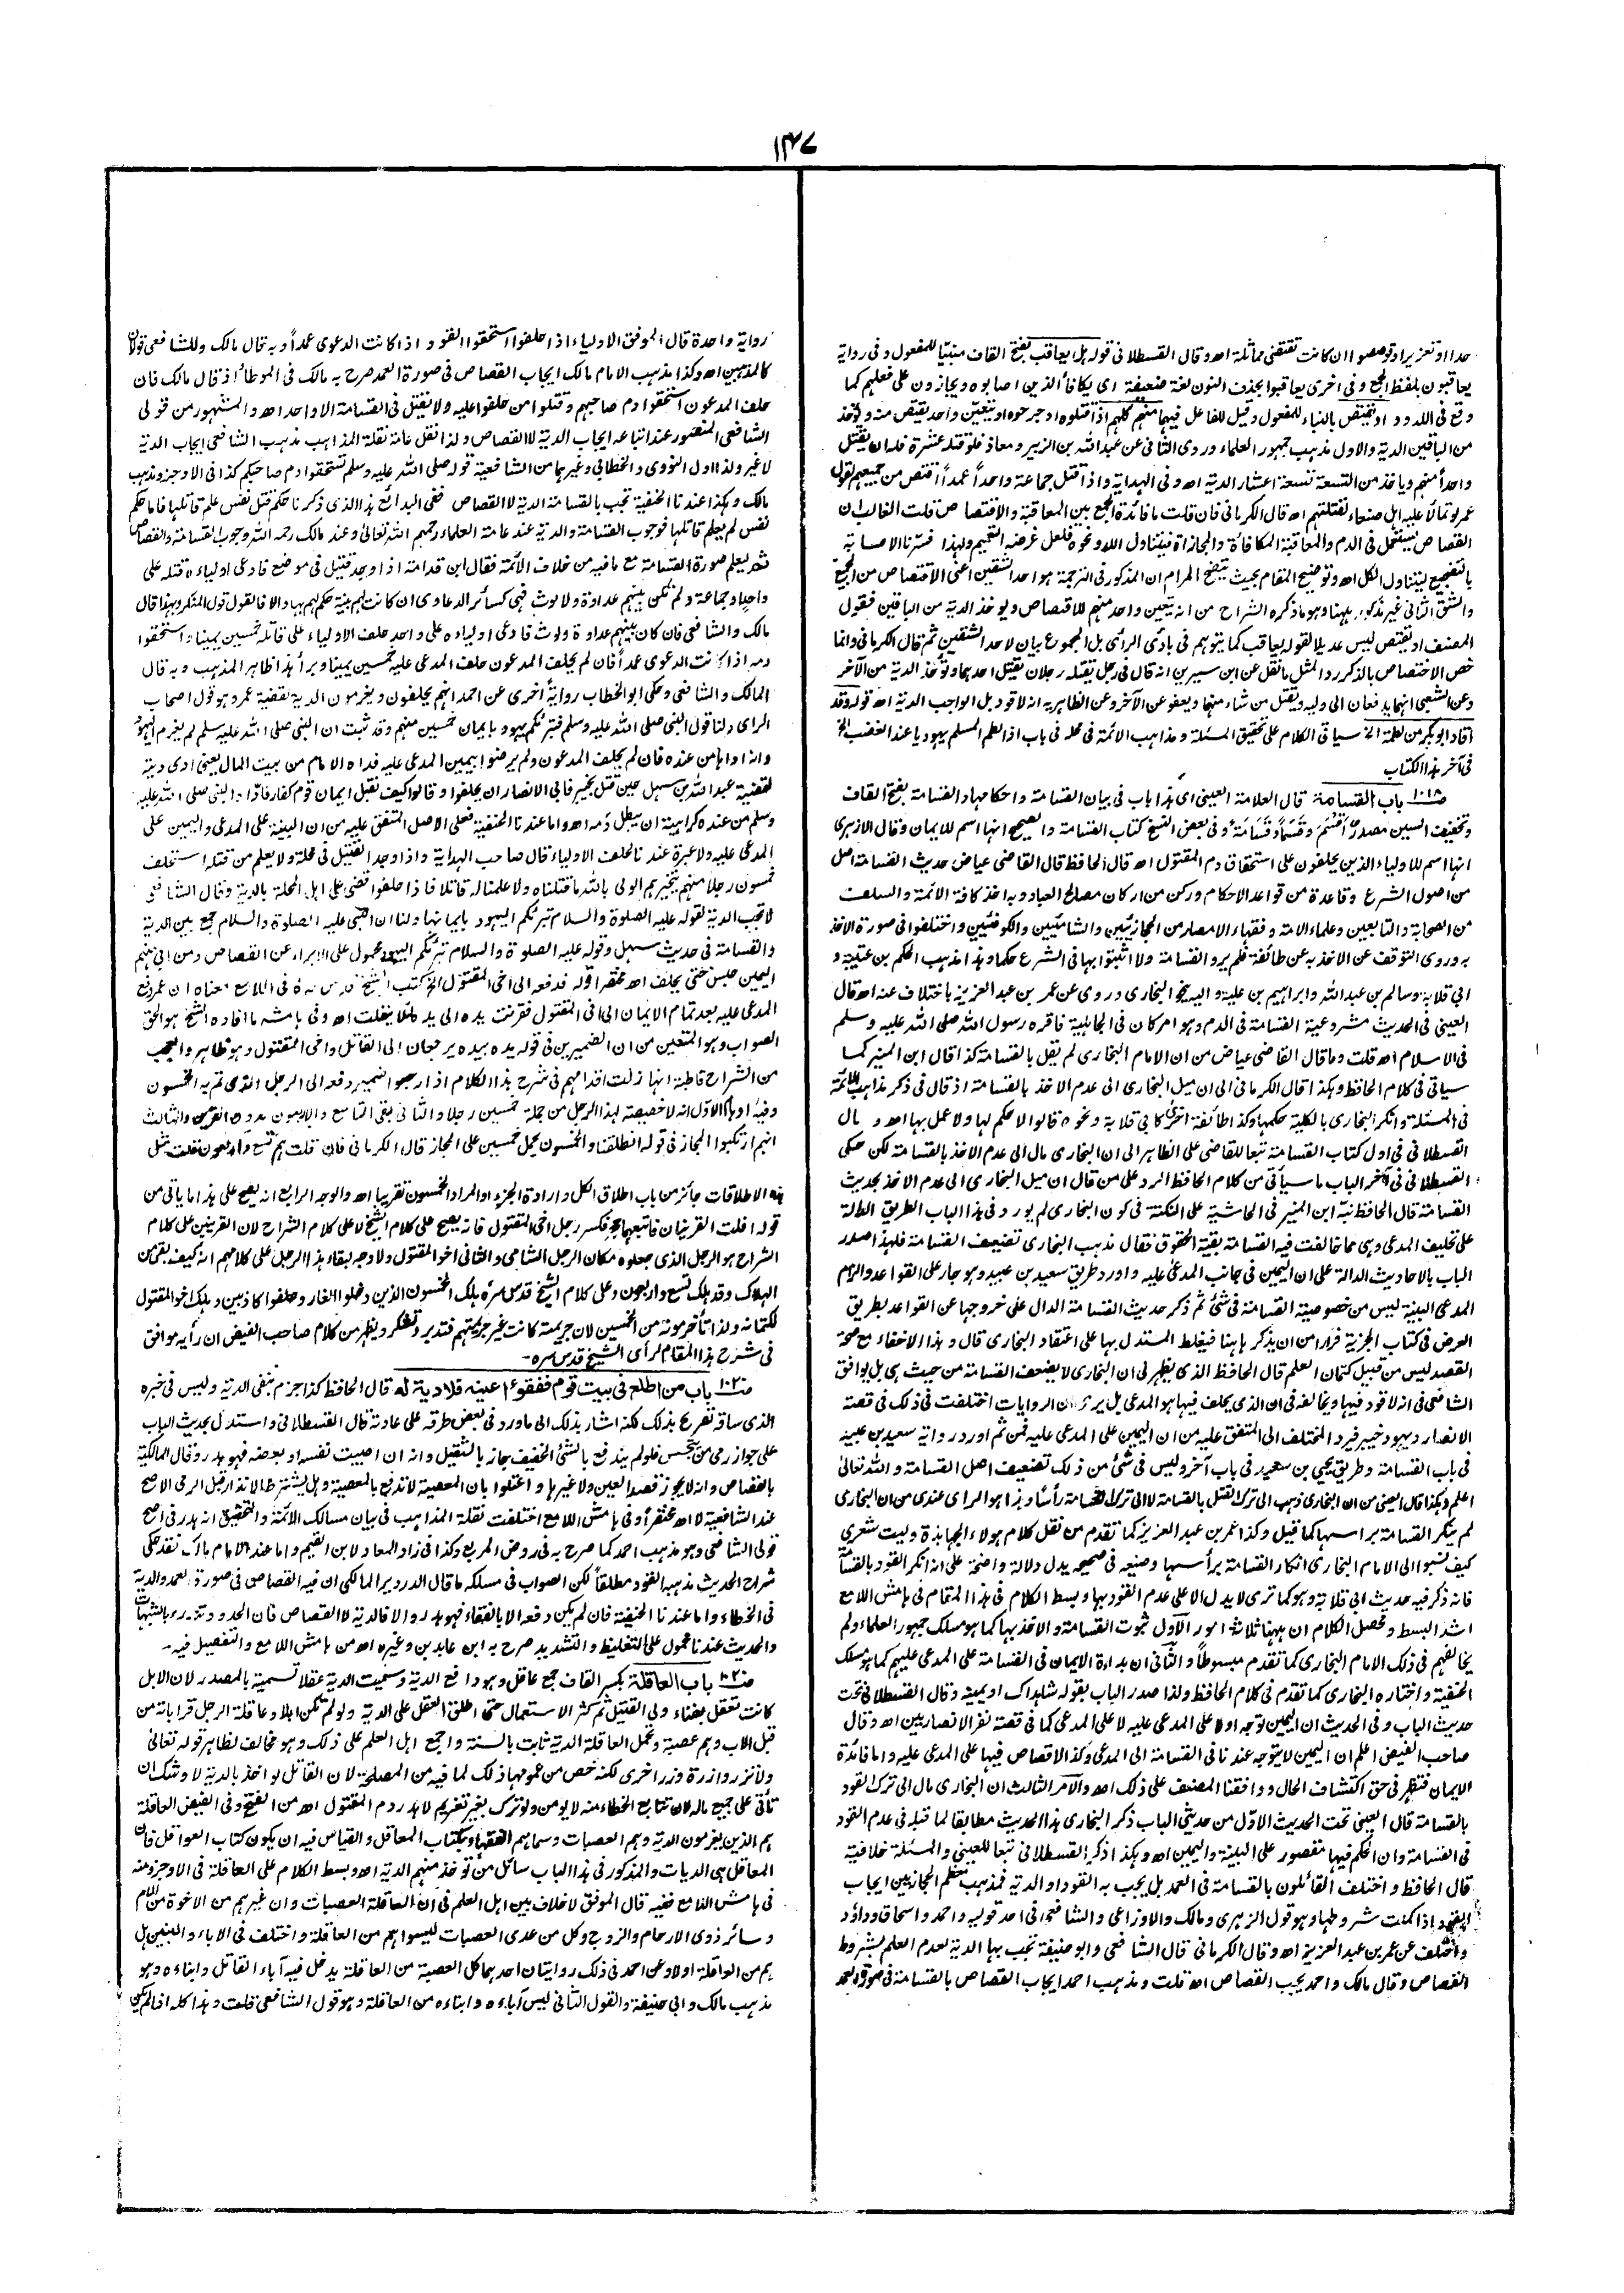 ۱۳۴۷
حدا او تعزیرا او قصصوا ان کانت تقتضی مماثلة اھ وقال القسطلانی قوله بل یعاقب بفتح القاف مبنیا للمفعول وفی روایة
یعاقبون بلفظ الجمع وفی اخری یعاقبوا بحذف النون لغة ضعیفة ای یکافأ الذین اصابوه ویجازون علی فعلهم کما
وقع فی اللدود او یقتص بالبناء للمفعول وقیل للفاعل فیهما منهم کلهم اذا قتلوه او جرحوه او یتعین واحد یقتص منه ویؤخذ
من الباقین الدیة والاول مذهب جمهور العلماء وروی الثانی عن عبد الله بن الزبیر ومعاذ فلو قتله عشرة فله ان یقتل
واحدا منهم ویاخذ من التسعة تسعة اعشار الدیة اھ وفی الهدایة واذا قتل جماعة واحداً عمداً اقتص من جمیعهم لقول
عمر لو تمالأ علیه اهل صنعاء لقتلتهم اھ قال الکرمانی فان قلت ما فائدة الجمع بین المعاقبة والاقتصاص قلت الغالب ان
القصاص یستعمل فی الدم والمعاقبة المکافاة والمجازاة فیتناول اللد ونحوه فلعل غرضه التعمیم ولهذا فسرنا الاصابة
بالتفجیع لیتناول الکل اھ وتوضیح المقام بحیث یتضح المرام ان المذکور فی الترجمة هو احد الشقین اعنی الاقتصاص من الجمیع
والشق الثانی غیر مذکور ههنا وهو ما ذکره الشراح من انه یتعین واحد منهم للاقتصاص ویوخذ الدیة من الباقین فقول
المصنف او یقتص لیس عدیلا لقوله یعاقب کما یتوهم فی بادی الرأی بل المجموع بیان لاحد الشقین ثم قال الکرمانی وانما
خص الاختصاص بالذکر رد المثل ما نقل عن ابن سیرین انه قال فی رجل یقتله رجلان یقتل احدهما وتؤخذ الدیة من الآخر
وعن الشعبی انهما یدفعان الی ولیه ویقتل من شاء منهما ویعفو عن الآخر وعن الظاهریة انه لا قود بل الواجب الدیة اھ قوله وقد
اقاد ابو بکر من لطمة الخ سیاتی الکلام علی تحقیق المسئلة ومذاهب الائمة فی محله فی باب اذا لطم المسلم یهودیا عند الغضب الخ
فی آخر هذا الکتاب
مت۱۰۱۸ باب القسامة قال العلامة العینی ای هذا باب فی بیان القسامة واحکامها والقسامة بفتح القاف
وتخفیف السین مصدر اَقْسَمَ وقَسَمًا وقَسَامَةً وفی بعض النسخ کتاب القسامة والصحیح انها اسم للایمان وقال الازهری
انها اسم للاولیاء الذین یحلفون علی استحقاق دم المقتول اھ قال الحافظ قال القاضی عیاض حدیث القسامة اصل
من اصول الشرع وقاعدة من قواعد الاحکام ورکن من ارکان مصالح العباد وبه اخذ کافة الائمة والسلف
من الصحابة والتابعین وعلماء الامة وفقهاء الامصار من الحجازیین والشامیین والکوفیین واختلفوا فی صورة الاخذ
به وروی التوقف عن الاخذ به عن طائفة فلم یروا القسامة ولا اثبتوا بها فی الشرع حکما وهذا مذهب الحکم بن عتیبة و
ابی قلابة وسالم بن عبد الله وابراهیم بن علیة والیه ینحو البخاری وروی عن عمر بن عبد العزیز باختلاف عنه اھ قال
العینی فی الحدیث مشروعیة القسامة فی الدم وهو امر کان فی الجاهلیة فاقره رسول الله صلی الله علیه وسلم
فی الاسلام اھ قلت وما قال القاضی عیاض من ان الامام البخاری لم یقل بالقسامة کذا قال ابن المنیر کما
سیاتی فی کلام الحافظ وهکذا قال الکرمانی الی ان میل البخاری الی عدم الاخذ بالقسامة اذ قال فی ذکر مذاهب الائمة
فی المسئلة وانکر البخاری بالکلیة حکمها وکذا طائفة اخری کابی قلابة ونحوه قالوا لا حکم لها ولا عمل بها اھ و مال
القسطلانی فی اول کتاب القسامة تبعا للقاضی علی الظاهر الی ان البخاری مال الی عدم الاخذ بالقسامة لکن حکی
القسطلانی فی آخر الباب ما سیأتی من کلام الحافظ الرد علی من قال ان میل البخاری الی عدم الاخذ بحدیث
القسامة قال الحافظ نبه ابن المنیر فی الحاشیة علی النکتة فی کون البخاری لم یورد فی هذا الباب الطریق الدالة
علی تحلیف المدعی وهی مما خالفت فیه القسامة بقیة الحقوق فقال مذهب البخاری تضعیف القسامة فلهذا صدر
الباب بالاحادیث الدالة علی ان الیمین فی جانب المدعی علیه واورد طریق سعید بن عبید وهو جار علی القواعد والزام
المدعی البینة لیس من خصوصیة القسامة فی شئ ثم ذکر حدیث القسامة الدال علی خروجها عن القواعد بطریق
العرض فی کتاب الجزیة فرارا من ان یذکر هاهنا فیغلط المستدل بها علی اعتقاد البخاری قال وهذا الاخفاء مع صحة
القصد لیس من قبیل کتمان العلم قال الحافظ الذی یظهر لی ان البخاری لا یضعف القسامة من حیث هی بل یوافق
الشافعی فی انه لا قود فیها ویخالفه فی ان الذی یحلف فیها هو المدعی بل یری ان الروایات اختلفت فی ذلک فی قصة
الانصار ویهود خیبر فیرد المختلف الی المتفق علیه من ان الیمین علی المدعی علیه فمن ثم اورد روایة سعید بن عبید
فی باب القسامة وطریق یحیی بن سعید فی باب آخر ولیس فی شئ من ذلک تضعیف اصل القسامة والله تعالی
اعلم وهکذا قال العینی من ان البخاری ذهب الی ترک القتل بالقسامة لا الی ترک القسامة رأسا وهذا هو الرای عندی من ان البخاری
لم ینکر القسامة برأسها کما قیل وکذا عمر بن عبد العزیز کما تقدم من نقل کلام هولاء الجهابذة ولیت شعری
کیف نسبوا الی الامام البخاری انکار القسامة برأسها وصنیعه فی صحیحه یدل دلالة واضحة علی انه انکر القود بالقسامة
فانه ذکر فیه حدیث ابی قلابة وهو کما تری لا یدل الا علی عدم القود بها وبسط الکلام فی هذا المقام فی هامش اللامع
اشد البسط ومحصل الکلام ان ههنا ثلاثة امور الاول ثبوت القسامة والاخذ بها کما هو مسلک جمهور العلماء ولم
یخالفهم فی ذلک الامام البخاری کما تقدم مبسوطاً والثانی ان بداءة الایمان فی القسامة علی المدعی علیهم کما هو مسلک
الحنفیة واختاره البخاری کما تقدم فی کلام الحافظ ولذا صدر الباب بقوله شاهداک او یمینه وقال القسطلانی تحت
حدیث الباب وفی الحدیث ان الیمین توجه اولا علی المدعی علیه لا علی المدعی کما فی قصة نفر الانصاریین اھ وقال
صاحب الفیض اعلم ان الیمین لا یتوجه عندنا فی القسامة الی المدعی وکذا لا قصاص فیها علی المدعی علیه واما فائدة
الایمان فتظهر فی حق اکتشاف الحال ووافقنا المصنف علی ذلک اھ والامر الثالث ان البخاری مال الی ترک القود
بالقسامة قال العینی تحت الحدیث الاول من حدیثی الباب ذکر البخاری هذا الحدیث مطابقا لما قبله فی عدم القود
فی القسامة وان الحکم فیها مقصور علی البینة والیمین اھ وهکذا ذکر القسطلانی تبعا للعینی والمسئلة خلافیة
قال الحافظ واختلف القائلون بالقسامة فی العمد بل یجب به القود او الدیة فمذهب معظم الحجازیین ایجاب
القود اذا کملت شروطها وهو قول الزهری ومالک والاوزاعی والشافعی فی احد قولیه واحمد واسحاق وداؤد
واختلف عن عمر بن عبد العزیز اھ وقال الکرمانی قال الشافعی وابو حنیفة تجب بها الدیة لعدم العلم بشروط
القصاص وقال مالک واحمد یجب القصاص اھ قلت ومذهب احمد ایجاب القصاص بالقسامة فی صورة العمد
روایة واحدة قال الموفق الاولیاء اذا حلفوا استحقوا القود اذا کانت الدعوی عمداً وبه قال مالک وللشافعی قولان
کالمذهبین اھ وکذا مذهب الامام مالک ایجاب القصاص فی صورة العمد صرح به مالک فی الموطأ اذ قال مالک فان
حلف المدعون استحقوا دم صاحبهم وقتلوا من حلفوا علیه ولا یقتل فی القسامة الا واحد اھ والمشهور من قولی
الشافعی المنصور عند اتباعه ایجاب الدیة لا القصاص ولذا نقل عامة نقلة المذاهب مذهب الشافعی ایجاب الدیة
لا غیر ولذا اول النووی والخطابی وغیرهما من الشافعیة قوله صلی الله علیه وسلم تستحقوا دم صاحبکم کذا فی الاوجز ومذهب
مالک وهکذا عندنا الحنفیة تجب بالقسامة الدیة لا القصاص ففی البدائع هذا الذی ذکرنا حکم قتل نفس علم قاتلها فاما حکم
نفس لم یعلم قاتلها فوجوب القسامة والدیة عند عامة العلماء رحمهم الله تعالی وعند مالک رحمه الله وجوب القسامة والقصاص
ثم لیعلم صورة القسامة مع ما فیه من خلاف الائمة فقال ابن قدامة اذا وجد قتیل فی موضع فادعی اولیاءه قتله علی
واحد او جماعة ولم تکن بینهم عداوة ولا لوث فهی کسائر الدعاوی ان کانت لهم بینة حکم لهم بها والا فالقول قول المنکر وبهذا قال
مالک والشافعی فان کان بینهم عداوة ولوث فادعی اولیاءه علی واحد حلف الاولیاء علی قاتله خمسین یمینا واستحقوا
دمه اذا کانت الدعوی عمداً فان لم یحلف المدعون حلف المدعی علیه خمسین یمینا وبرأ هذا ظاهر المذهب وبه قال
المالک والشافعی وحکی ابو الخطاب روایة اخری عن احمد انهم یحلفون ویغرمون الدیة لقضیة عمر وهو قول اصحاب
الرای ولنا قول النبی صلی الله علیه وسلم فتبرئکم یهود بایمان خمسین منهم وقد ثبت ان النبی صلی الله علیه وسلم لم یغرم الیهود
وانه اداها من عنده فان لم یحلف المدعون ولم یرضوا بیمین المدعی علیه فداه الامام من بیت المال یعنی ادی دیته
لقضیة عبد الله بن سهل حین قتل بخیبر فابی الانصار ان یحلفوا وقالوا کیف نقبل ایمان قوم کفار فوداه النبی صلی الله علیه
وسلم من عنده کراهیة ان یبطل دمه اھ واما عندنا الحنفیة فعلی الاصل المتفق علیه من ان البینة علی المدعی والیمین علی
المدعی علیه ولا عبرة عندنا لحلف الاولیاء قال صاحب الهدایة واذا وجد القتیل فی محلة ولا یعلم من قتله استحلف
خمسون رجلا منهم یتخیرهم الولی بالله ما قتلناه ولا علمنا له قاتلا فاذا حلفوا قضی علی اهل المحلة بالدیة وقال الشافعی
لا تجب الدیة لقوله علیه الصلوة والسلام تبرئکم الیهود بایمانها ولنا ان النبی علیه الصلوة والسلام جمع بین الدیة
والقسامة فی حدیث سهل وقوله علیه الصلوة والسلام تبرئکم الیهود محمول علی الابراء عن القصاص ومن ابی منهم
الیمین حبس حتی یحلف اھ مختصرا قوله فدفعه الی اخی المقتول الخ کتب الشیخ قدس سره فی اللامع معناه ان عمر دفع
المدعی علیه بعد تمام الایمان الی اخی المقتول فقرنت یده الی یده لئلا یفلت اھ وفی هامشه ما افاده الشیخ هو الحق
الصواب وهو المتعین من ان الضمیرین فی قوله یده بیده یرجعان الی القاتل واخی المقتول وهو ظاهر والعجب
من الشراح قاطبة انها زلت اقدامهم فی شرح هذا الکلام اذ ارجعوا الضمیر دفعه الی الرجل الذی تم به الخمسون
وفیه اوهام الاول انه لا خصیصة لهذا الرجل من جملة خمسین رجلا والثانی بقی التاسع والاربعون بدون القرین والثالث
انهم ارتکبوا المجاز فی قوله انطلقنا والخمسون بحمل خمسین علی المجاز قال الکرمانی فان قلت هم تسع واربعون قلت مثل
هذه الاطلاقات جائز من باب اطلاق الکل وارادة الجزء او المراد الخمسون تقریبا اھ والوجه الرابع انه یصح علی هذا ما یاتی من
قوله افلت القرینان فاتبعهما حجر فکسر رجل اخی المقتول فانه یصح علی کلام الشیخ لا علی کلام الشراح لان القرینین علی کلام
الشراح هو الرجل الذی جعلوه مکان الرجل الشامی والثانی اخو المقتول ولا وجه لبقاء هذا الرجل علی کلامهم انه کیف بقی من
الهلاک وقد هلک تسع واربعون وعلی کلام الشیخ قدس سره هلک الخمسون الذین دخلوا الغار وحلفوا کاذبین وهلک اخو المقتول
لکتمانه ولذا تأخر موته من الخمسین لان جریمته کانت غیر جریمتهم فتدبر وتشکر ویظهر من کلام صاحب الفیض ان رأیه موافق
فی شرح هذا المقام لرأی الشیخ قدس سره۔
مت۱۰۲ باب من اطلع فی بیت قوم ففقؤا عینه فلا دیة له قال الحافظ کذا جزم بنفی الدیة ولیس فی خبره
الذی ساقه تصریح بذلک لکنه اشار بذلک الی ما ورد فی بعض طرقه علی عادته قال القسطلانی واستدل بحدیث الباب
علی جواز رمی من یتجسس فلو لم یندفع بالشئ الخفیف جاز بالثقیل وانه ان اصیبت نفسه او بعضه فهو هدر وقال المالکیة
بالقصاص وانه لا یجوز قصد العین ولا غیرها واعتلوا بان المعصیة لا تدفع بالمعصیة وهل یشترط الانذار قبل الرمی الاصح
عند الشافعیة لا اھ مختصراً وفی هامش اللامع اختلفت نقلة المذاهب فی بیان مسالک الائمة والتحقیق انه هدر فی اصح
قولی الشافعی وهو مذهب احمد کما صرح به فی روض المربع وکذا فی زاد المعاد لابن القیم واما عند الامام مالک فقد حکی
شراح الحدیث مذهبه القود مطلقاً لکن الصواب فی مسلکه ما قال الدردیر المالکی ان فیه القصاص فی صورة العمد والدیة
فی الخطاء واما عندنا الحنفیة فان لم یکن دفعه الا بالفقاء فهو هدر والا فالدیة لا القصاص فان الحدود تندرء بالشبهات
والحدیث عندنا محمول علی التغلیظ والتشدید صرح به ابن عابدین وغیره اھ من هامش اللامع والتفصیل فیه۔
مت۱۰۲ باب العاقلة بکسر القاف جمع عاقل وهو دافع الدیة وسمیت الدیة عقلا تسمیة بالمصدر لان الابل
کانت تعقل بفناء ولی القتیل ثم کثر الاستعمال حتی اطلق العقل علی الدیة ولو لم تکن ابلا وعاقلة الرجل قراباته من
قبل الاب وهم عصبته وتحمل العاقلة الدیة ثابت بالسنة واجمع اهل العلم علی ذلک وهو مخالف لظاهر قوله تعالی
ولا تزر وازرة وزر اخری لکنه خص من عمومها ذلک لما فیه من المصلحة لان القاتل لو اخذ بالدیة لاوشک ان
تأتی علی جمیع ماله لان تتابع الخطاء منه لا یومن ولو ترک بغیر تغریم لاهدر دم المقتول اھ من الفتح وفی الفیض العاقلة
هم الذین یغرمون الدیة وهم العصبات وسماهم الفقهاء بکتاب المعاقل والقیاس فیه ان یکون کتاب العواقل فان
المعاقل هی الدیات والمذکور فی هذا الباب مسائل من توخذ منهم الدیة اھ وبسط الکلام علی العاقلة فی الاوجز ومنه
فی هامش اللامع ففیه قال الموفق لا خلاف بین اهل العلم فی ان العاقلة العصبات وان غیرهم من الاخوة من الام
وسائر ذوی الارحام والزوج وکل من عدی العصبات لیسوا هم من العاقلة واختلف فی الآباء والبنین هل
هم من العاقلة اولا وعن احمد فی ذلک روایتان احدهما کل العصبة من العاقلة یدخل فیه آباء القاتل وابناءه وهو
مذهب مالک وابی حنیفة والقول الثانی لیس آباءه وابناءه من العاقلة وهو قول الشافعی قلت وهذا کله اذا لم یکن